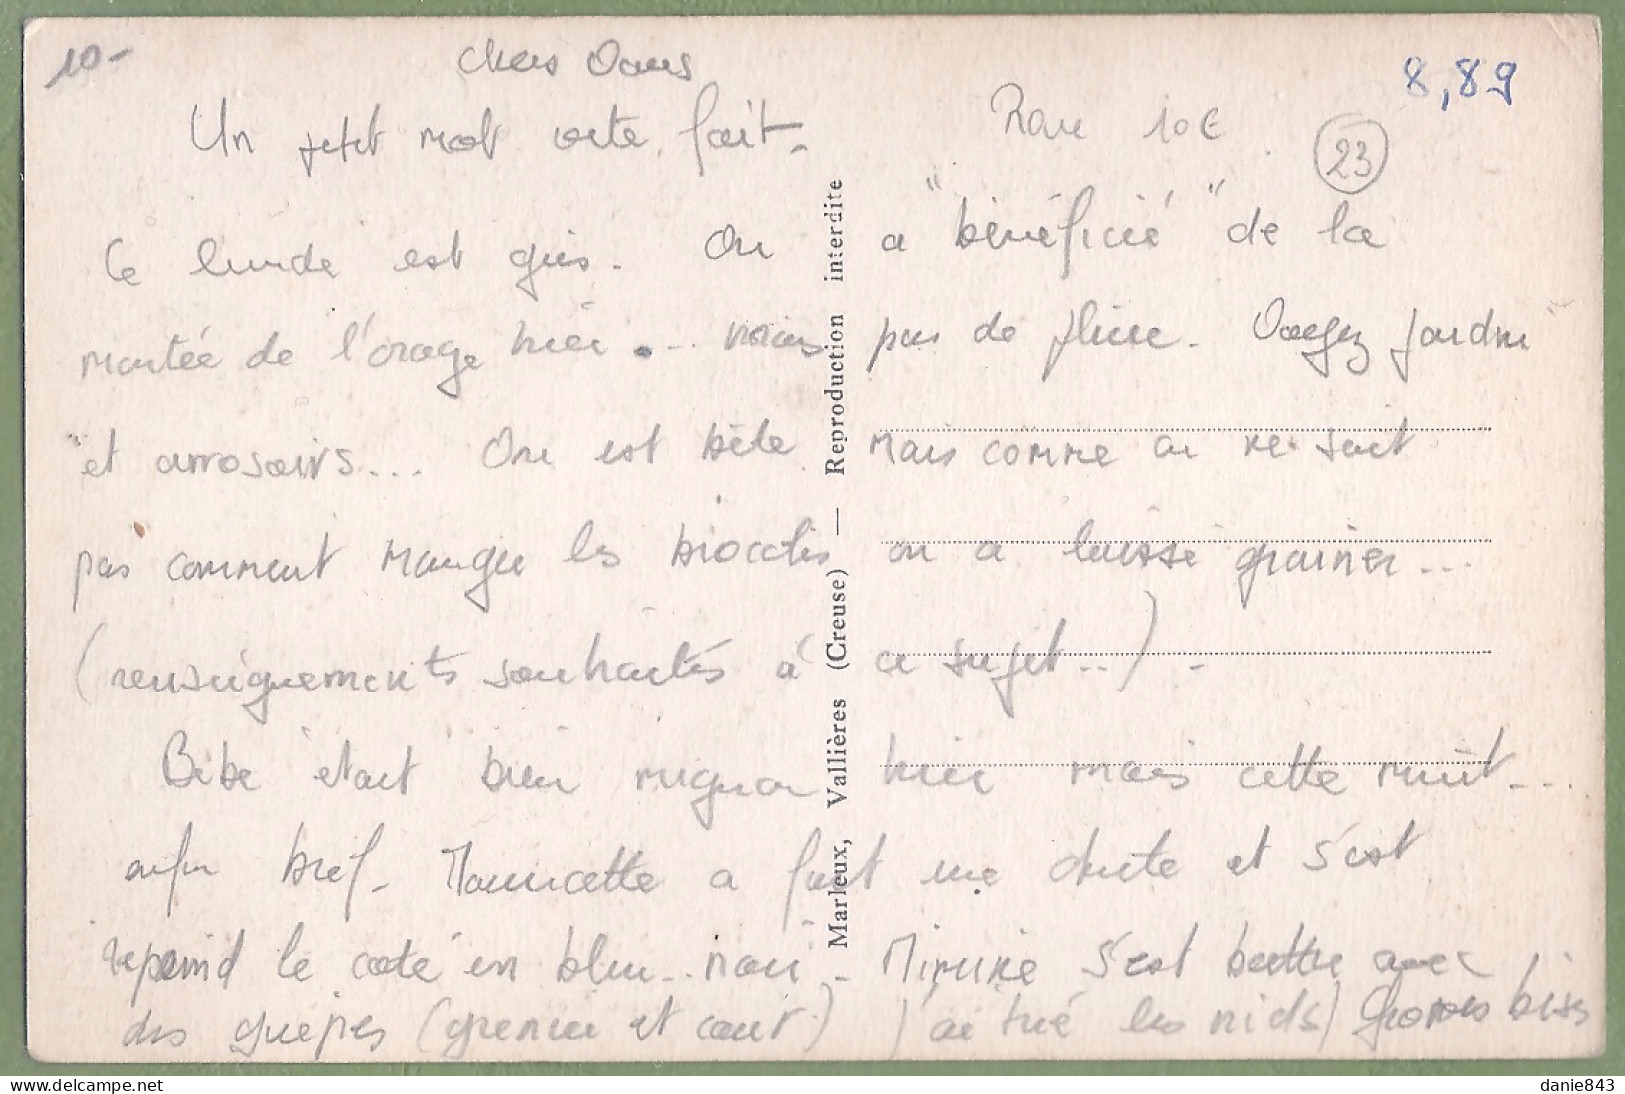 10-
Chers
8,89
Un petit mot vite fait.
Rare 10€
23
Ce lundi est gris. On a "bénéficié" de la
montée de l'orage hier... mais pas de pluie. jardin
et arrosoirs... On est bête mais comme on ne sait
pas comment manger les brocolis on a laissé grainer...
(renseignements souhaités à ce sujet..)-
Bébé était bien mignon hier mais cette nuit...
enfin bref- Mauricette a fait une chute et s'est
repeind le côté en bleu.. noir- s'est battue avec
des guêpes (grenier et cour) j'ai tué les nids) Grosses bises
Marleux, Vallières (Creuse) — Reproduction interdite
danie843
www.delcampe.net